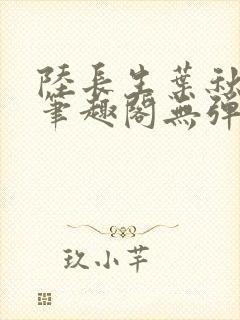 陸長生葉秋
筆趣閣無彈
玖小芊